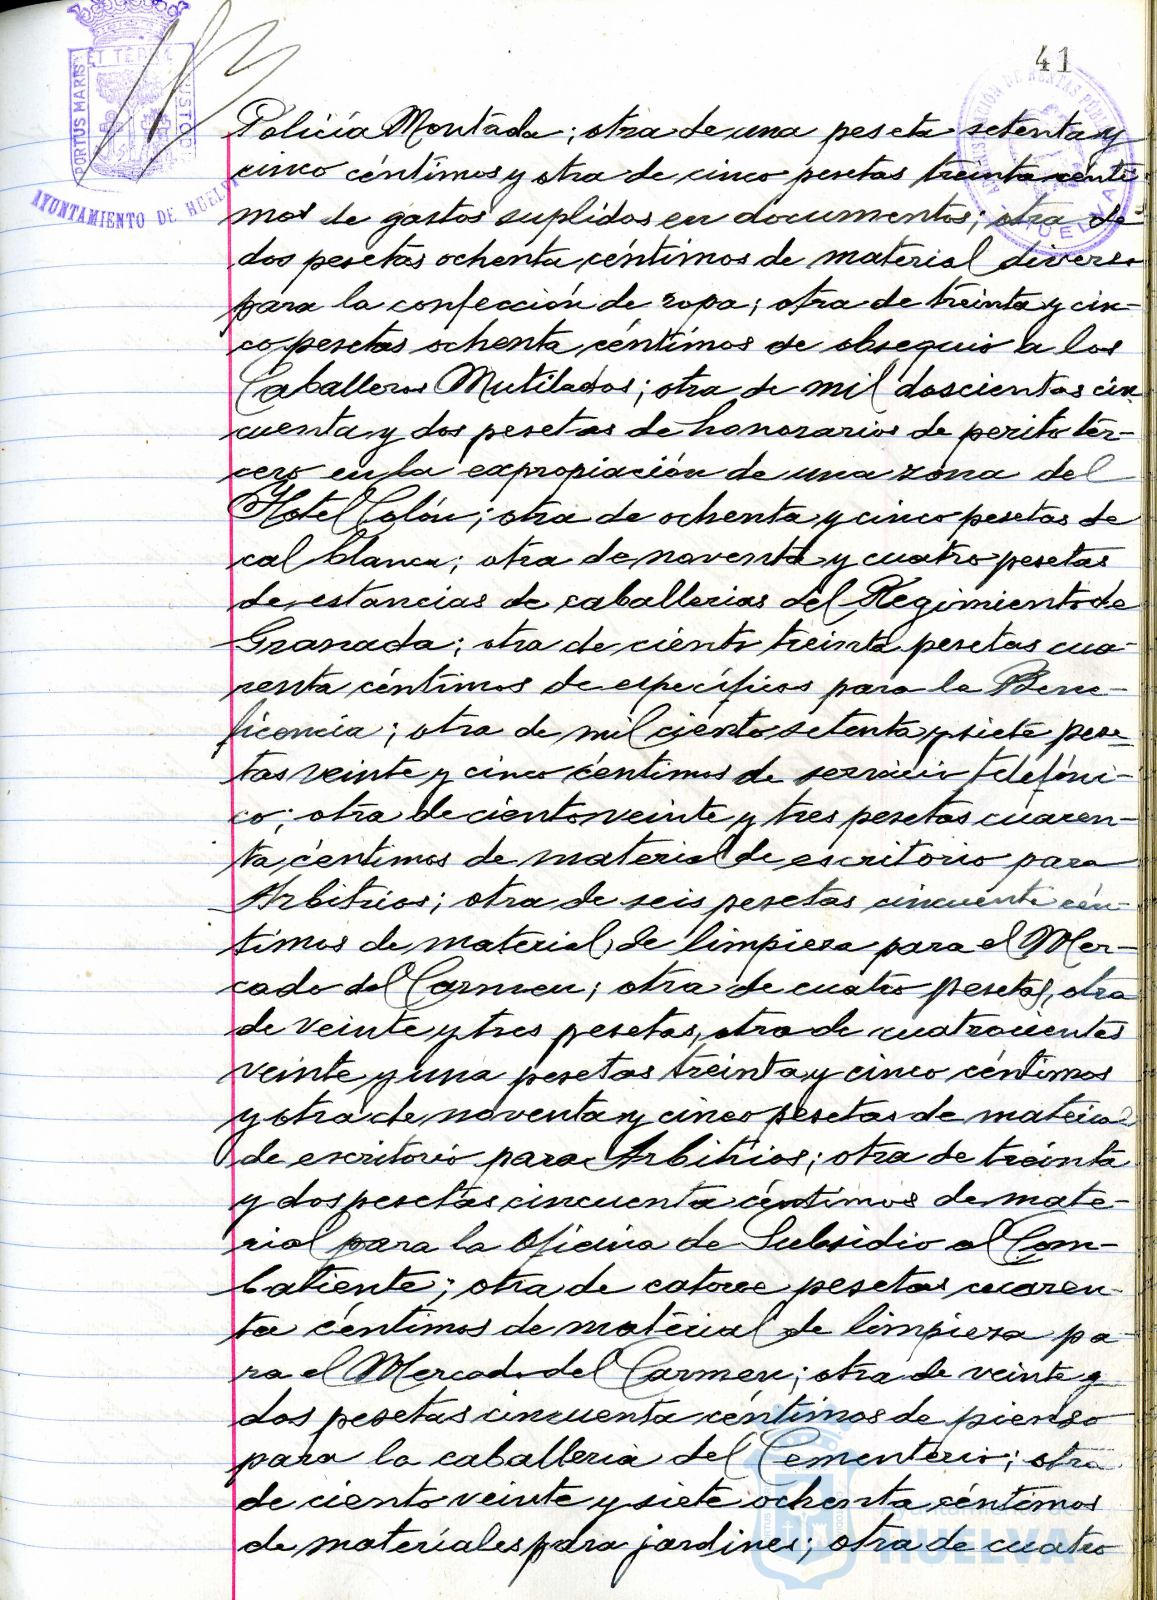 41
PORTUS MARIS
ET TERRE
CUSTODIA
AYUNTAMIENTO DE HUELVA
HUELVA
Policía Montada; otra de una peseta setenta y
cinco céntimos y otra de cinco pesetas treinta cénti-
mos de gastos suplidos en documentos; otra de
dos pesetas ochenta céntimos de material diverso
para la confección de ropa; otra de treinta y cin-
co pesetas ochenta céntimos de obsequio a los
Caballeros Mutilados; otra de mil doscientas cin-
cuenta y dos pesetas de honorarios de perito ter-
cero en la expropiación de una zona del
Hotel Colón; otra de ochenta y cinco pesetas de
cal blanca; otra de noventa y cuatro pesetas
de estancias de caballerias del Regimiento de
Granada; otra de ciento treinta pesetas cua-
renta céntimos de específicos para la Bene-
ficencia; otra de mil ciento setenta y siete pese-
tas veinte y cinco céntimos de servicio telefóni-
co; otra de ciento veinte y tres pesetas cuaren-
ta céntimos de material de escritorio para
Arbitrios; otra de seis pesetas cincuenta cén-
timos de material de limpieza para el Mer-
cado del Carmen; otra de cuatro pesetas, otra
de veinte y tres pesetas, otra de cuatrocientas
veinte y una pesetas treinta y cinco céntimos
y otra de noventa y cinco pesetas de material
de escritorio para Arbitrios; otra de treinta
y dos pesetas cincuenta céntimos de mate-
rial para la Oficina de Subsidio al Com-
batiente; otra de catorce pesetas cuaren-
ta céntimos de material de limpieza pa-
ra el Mercado del Carmen; otra de veinte y
dos pesetas cincuenta céntimos de pienso
para la caballeria del Cementerio; otra
de ciento veinte y siete ochenta céntimos
de materiales para jardines; otra de cuatro
Ayuntamiento de
HUELVA